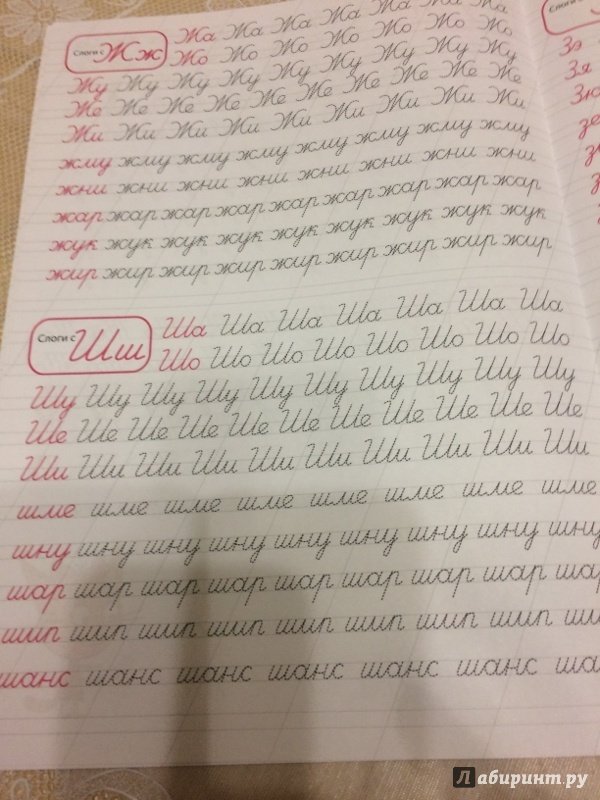 Слоги с Жж
Жа Жа Жа Жа Жа Жа Жа
Жо Жо Жо Жо Жо Жо Жо
Жу Жу Жу Жу Жу Жу Жу Жу Жу
Же Же Же Же Же Же Же Же Же Же
Жи Жи Жи Жи Жи Жи Жи Жи Жи
жму жму жму жму жму жму жму жму
жни жни жни жни жни жни жни жни
жар жар жар жар жар жар жар жар жар
жук жук жук жук жук жук жук жук жук
жир жир жир жир жир жир жир жир жир
Слоги с Шш
Ша Ша Ша Ша Ша Ша Ша
Шо Шо Шо Шо Шо Шо Шо Шо
Шу Шу Шу Шу Шу Шу Шу Шу Шу Шу
Ше Ше Ше Ше Ше Ше Ше Ше Ше Ше Ше
Ши Ши Ши Ши Ши Ши Ши Ши Ши Ши
шме шме шме шме шме шме шме шме
шну шну шну шну шну шну шну шну шну
шар шар шар шар шар шар шар шар шар
шип шип шип шип шип шип шип шип шип
шанс шанс шанс шанс шанс шанс ша
Слоги с
Зо
Зя
Лабиринт.ру